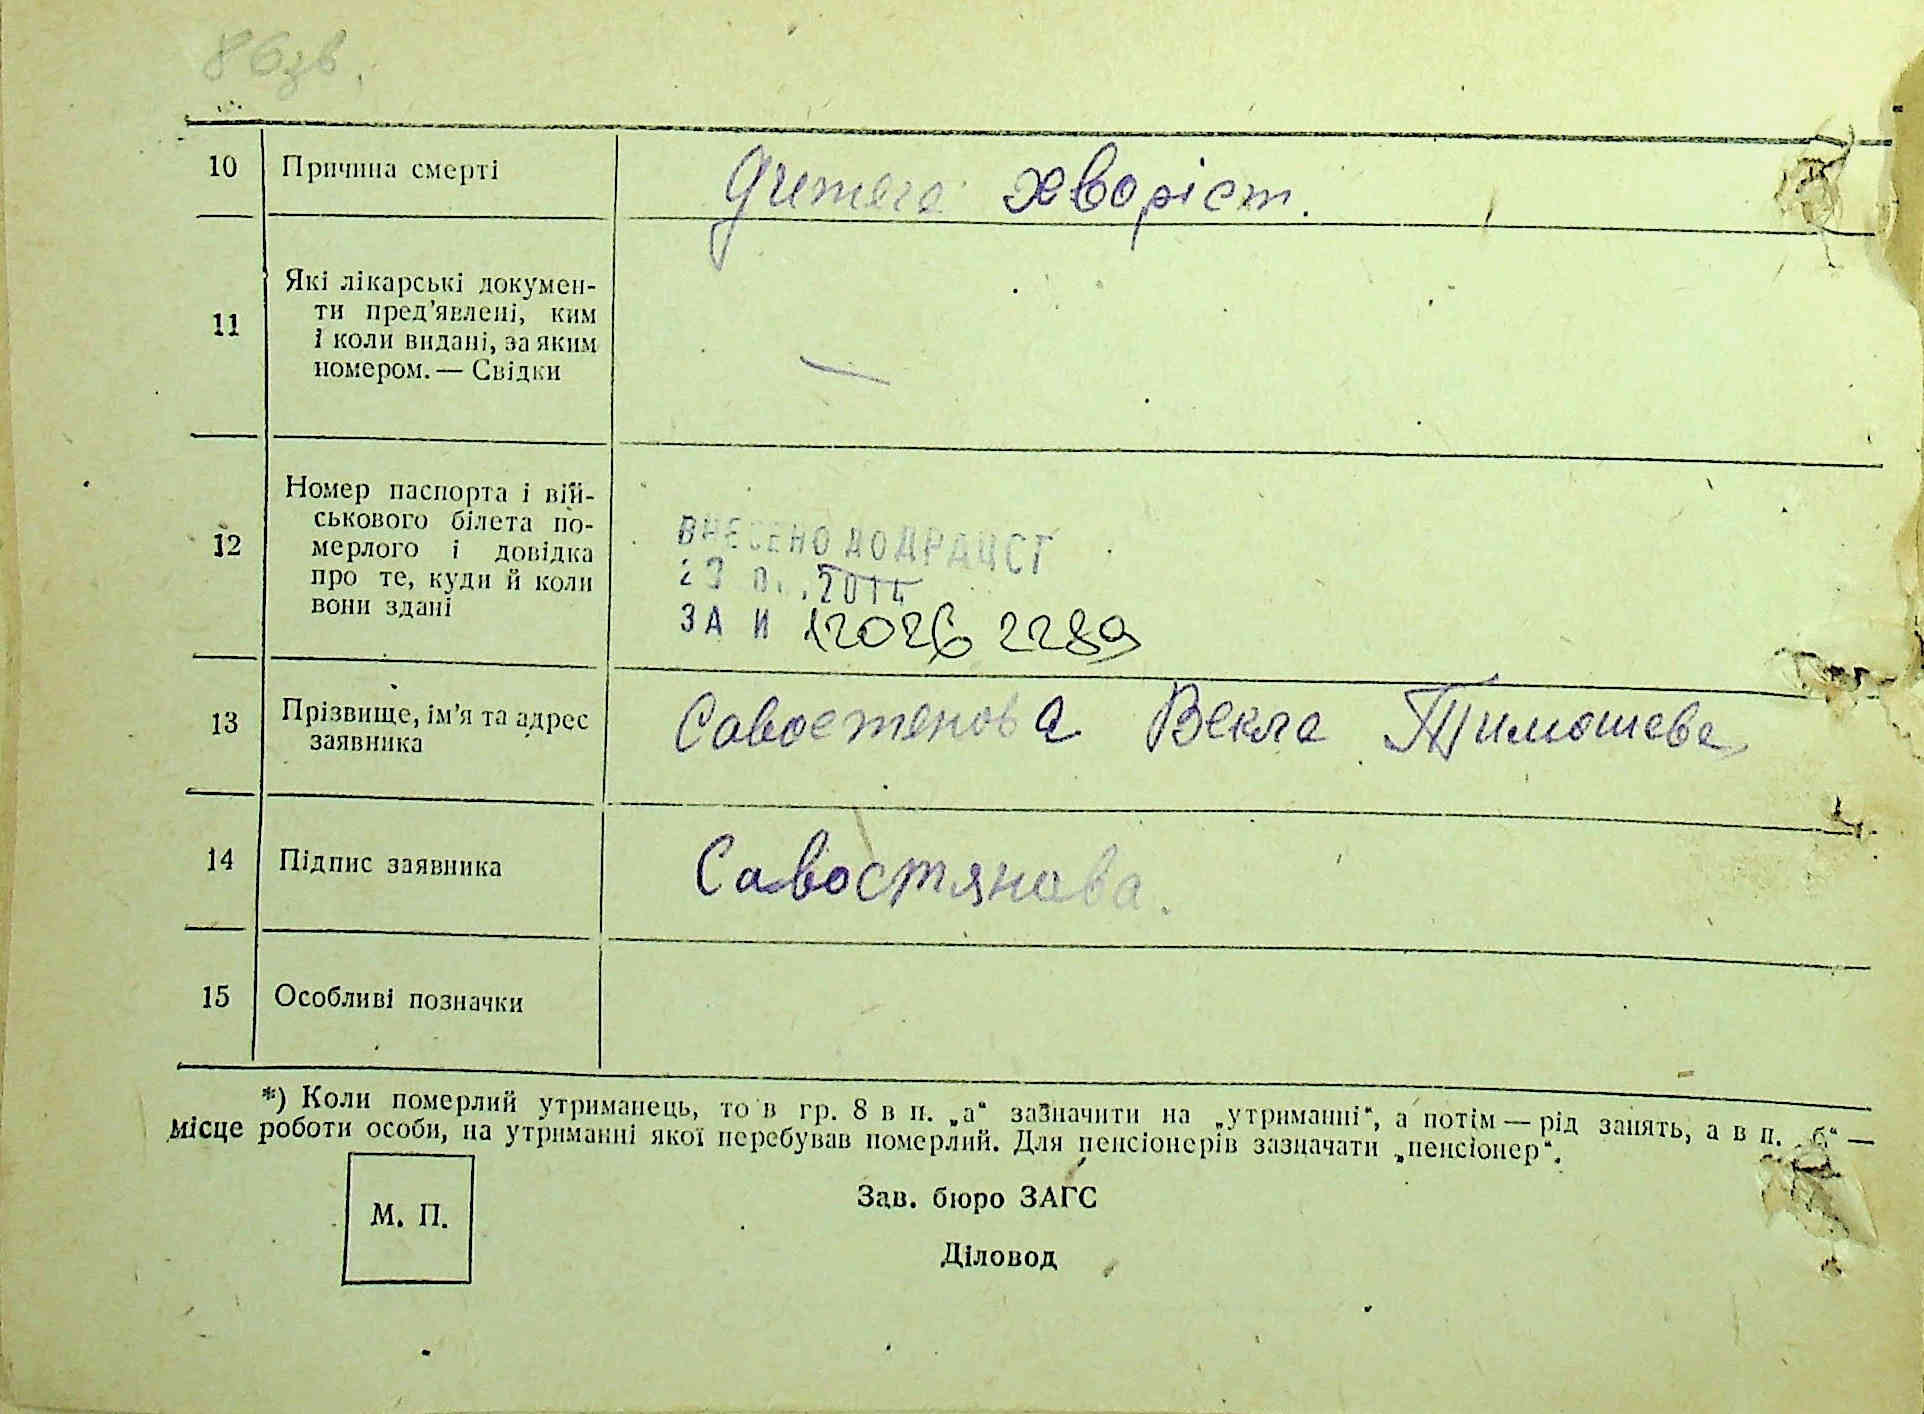 86зв.
10 Причина смерті дитяча хворіст.
11 Які лікарські докумен-
ти пред'явлені, ким
і коли видані, за яким
номером. — Свідки —
12 Номер паспорта і вій-
ськового білета по-
мерлого і довідка
про те, куди й коли
вони здані
ВНЕСЕНО ДО ДРАЦСГ
2014
ЗА И 12026 2289
13 Прізвище, ім'я та адрес
заявника
Савостенова Векла Тимошева
14 Підпис заявника Савостянова.
15 Особливі позначки
*) Коли померлий утриманець, то в гр. 8 в п. „а“ зазначити на „утриманні“, а потім — рід занять, а в п. „б“ —
місце роботи особи, на утриманні якої перебував померлий. Для пенсіонерів зазначати „пенсіонер“.
М. П.
Зав. бюро ЗАГС
Діловод